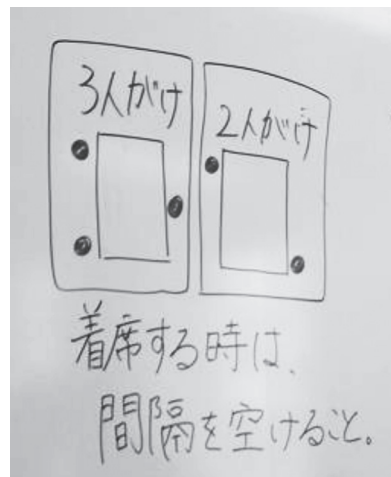 3人がけ
2人がけ
着席する時は、
間隔を空けること。